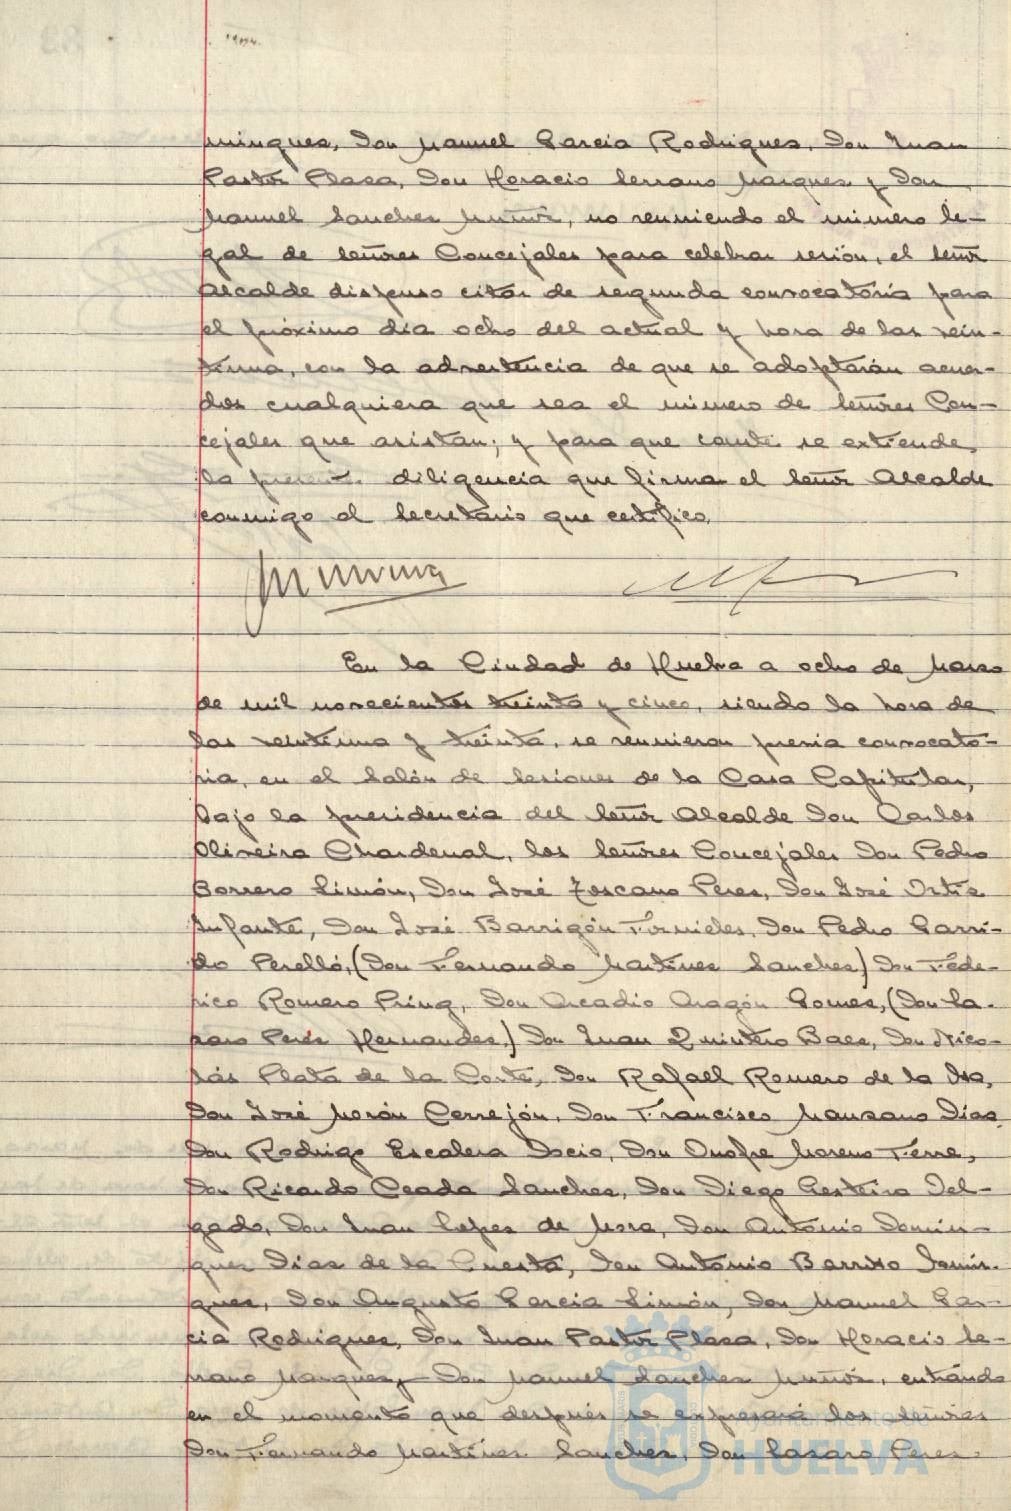 minguez, Don Manuel Garcia Rodriguez, Don Juan
Pastor Plaza, Don Horacio Serrano Marquez y Don
Manuel Sanchez Muñoz, no reuniendo el número le-
gal de señores Concejales para celebrar sesión, el señor
Alcalde dispuso citar de segunda convocatoria para
el próximo dia ocho del actual y hora de las vein-
tiuna, con la advertencia de que se adoptarán acuer-
dos cualquiera que sea el número de señores Con-
cejales que asistan; y para que conste se extiende
la presente diligencia que firma el señor Alcalde
conmigo el Secretario que certifico.
En la Ciudad de Huelva a ocho de Marzo
de mil novecientos treinta y cinco, siendo la hora de
las veintiuna y treinta, se reunieron previa convocato-
ria, en el Salón de Sesiones de la Casa Capitular,
bajo la presidencia del señor Alcalde Don Carlos
Oliveira Chardenal, los señores Concejales Don Pedro
Borrero Limón, Don José Toscano Perez, Don José Ortiz
Infante, Don José Barrigón Fornieles, Don Pedro Garri-
do Perelló, (Don Fernando Martinez Sanchez) Don Fede-
rico Romero Pring, Don Arcadio Aragón Gomez, (Don La-
zaro Perez Hernandez,) Don Juan Quintero Baez, Don Nico-
lás Plata de la Corte, Don Rafael Romero de la Osa,
Don José Morón Cerrejón, Don Francisco Manzano Diaz,
Don Rodrigo Escalera Docio, Don Onofre Moreno Ferre,
Don Ricardo Ceada Sanchez, Don Diego Gesteira Del-
gado, Don Juan Lopez de Mora, Don Antonio Domin-
guez Diaz de la Cuesta, Don Antonio Barroso Domin-
guez, Don Augusto Garcia Limón, Don Manuel Gar-
cia Rodriguez, Don Juan Pastor Plaza, Don Horacio Se-
rrano Marquez y Don Manuel Sanchez Muñoz, entrando
en el momento que después se expresará los señores
Don Fernando Martinez Sanchez, Don Lazaro Perez
Ayuntamiento de
HUELVA